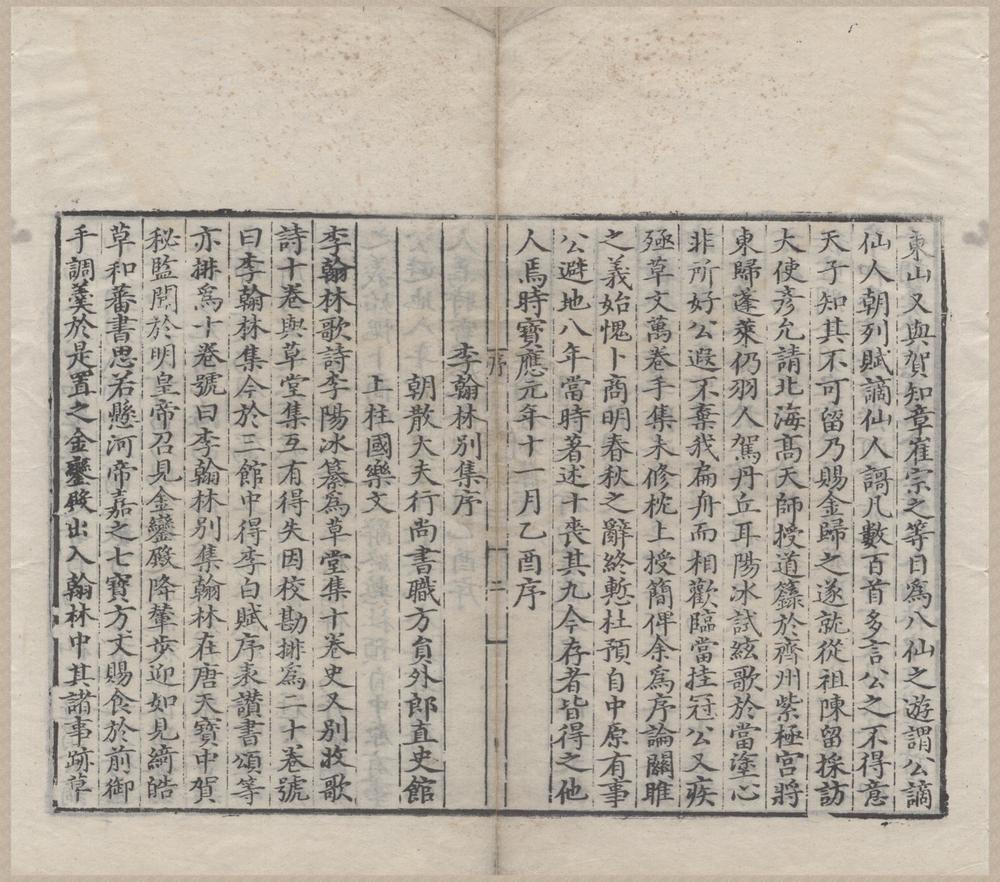 東山又與賀知章崔宗之等目爲八仙之遊謂公謫
仙人朝列賦謫仙人謌凡數百首多言公之不得意
天子知其不可留乃賜金歸之遂就從祖陳留採訪
大使彦允請北海髙天師授道籙於齊州紫極宮將
東歸蓬萊仍羽人駕丹丘耳陽冰試絃歌於當塗心
非所好公遐不棄我扁舟而相歡臨當挂冠公又疾
殛草文萬卷手集未修枕上授簡俾余爲序論關雎
之義始愧卜商明春秋之辭終慙杜預自中原有事
公避地八年當時著述十喪其九今存者皆得之他
人焉時寶應元年十一月乙酉序
序
二
李翰林別集序
朝散大夫行尚書職方員外郎直史館
上柱國樂文
李翰林歌詩李陽冰纂爲草堂集十卷史又別收歌
詩十卷與草堂集互有得失因校勘排爲二十卷號
曰李翰林集今於三館中得李白賦序表讚書頌等
亦排爲十卷號曰李翰林別集翰林在唐天寶中賀
秘監聞於明皇帝召見金鑾殿降輦步迎如見綺皓
草和蕃書思若懸河帝嘉之七寶方丈賜食於前御
手調羹於是置之金鑾殿出入翰林中其諸事跡草